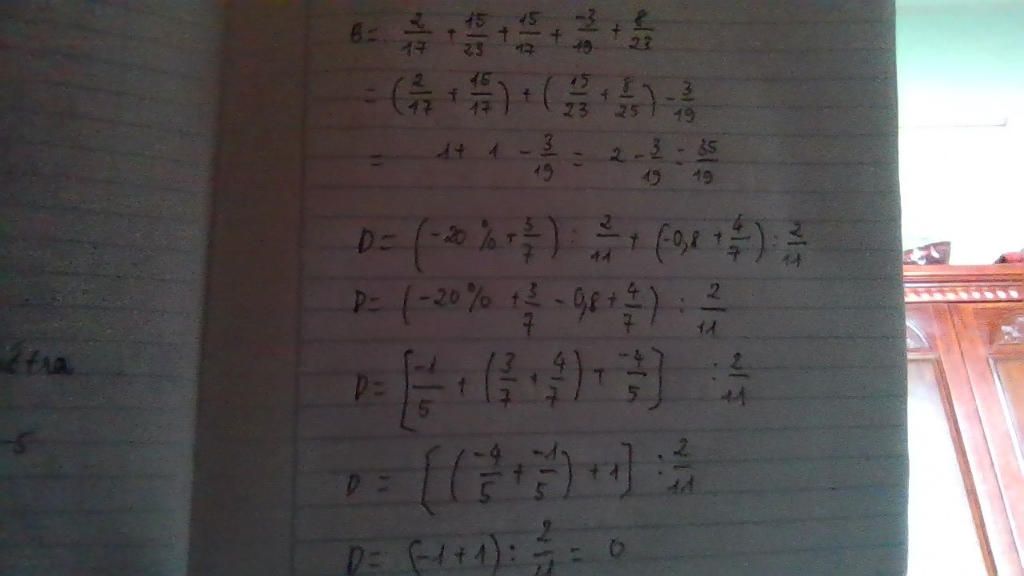 B = 2/17 + 15/23 + 15/17 + -3/19 + 8/23
= (2/17 + 15/17) + (15/23 + 8/23) - 3/19
= 1 + 1 - 3/19 = 2 - 3/19 = 35/19
D = (-20% + 3/7) : 2/11 + (-0,8 + 4/7) : 2/11
D = (-20% + 3/7 - 0,8 + 4/7) : 2/11
D = [-1/5 + (3/7 + 4/7) + -4/5] : 2/11
D = [(-4/5 + -1/5) + 1] : 2/11
D = (-1 + 1) : 2/11 = 0
5